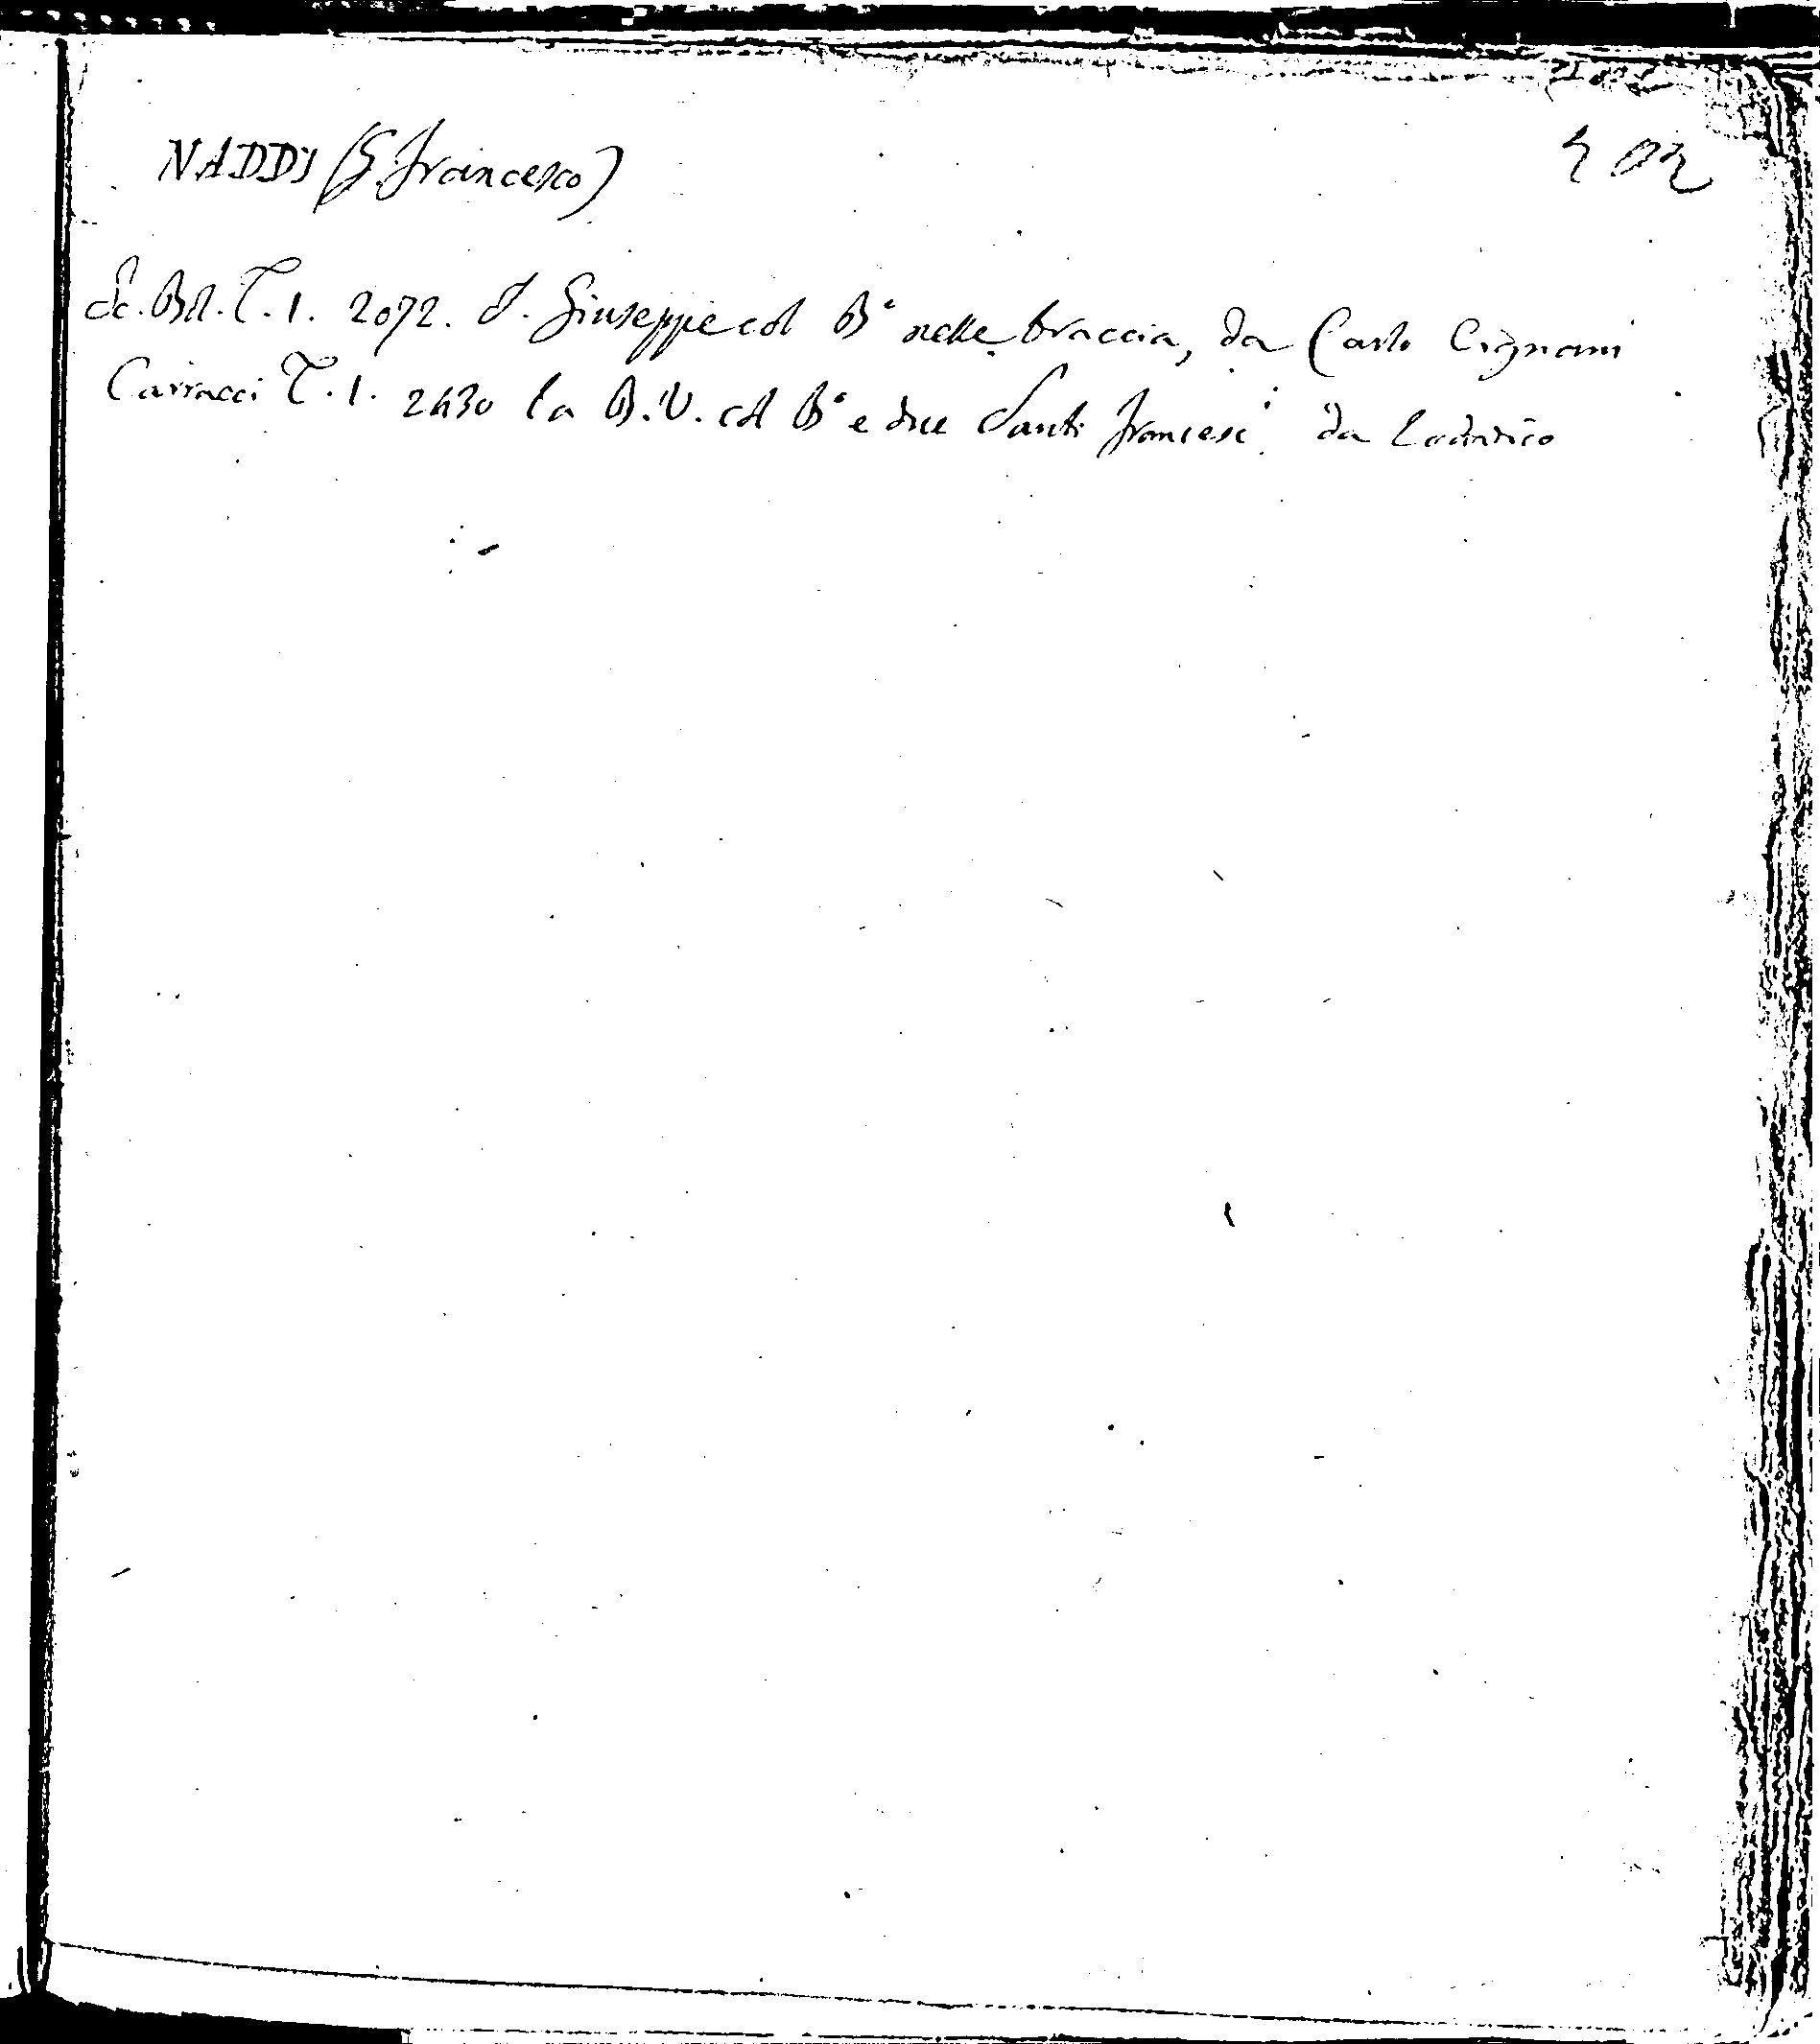 NADDI (G. Francesco)
Sc. Bol. T. 1. 2072. S. Giuseppe col B° nelle braccia, da Carlo Cignani
Carracci T. 1. 2430 la B. V. col B° e due Santi francesi da Lodovico